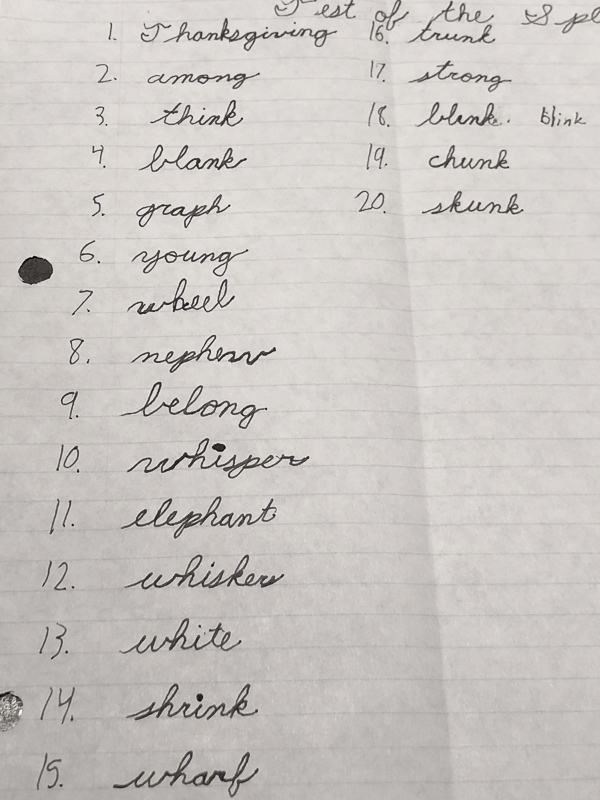 Test of the
1. Thanksgiving
2. among
3. think
4. blank
5. graph
6. young
7. wheel
8. nephew
9. belong
10. whisper
11. elephant
12. whisker
13. white
14. shrink
15. wharf
16. trunk
17. strong
18. blink. blink
19. chunk
20. skunk